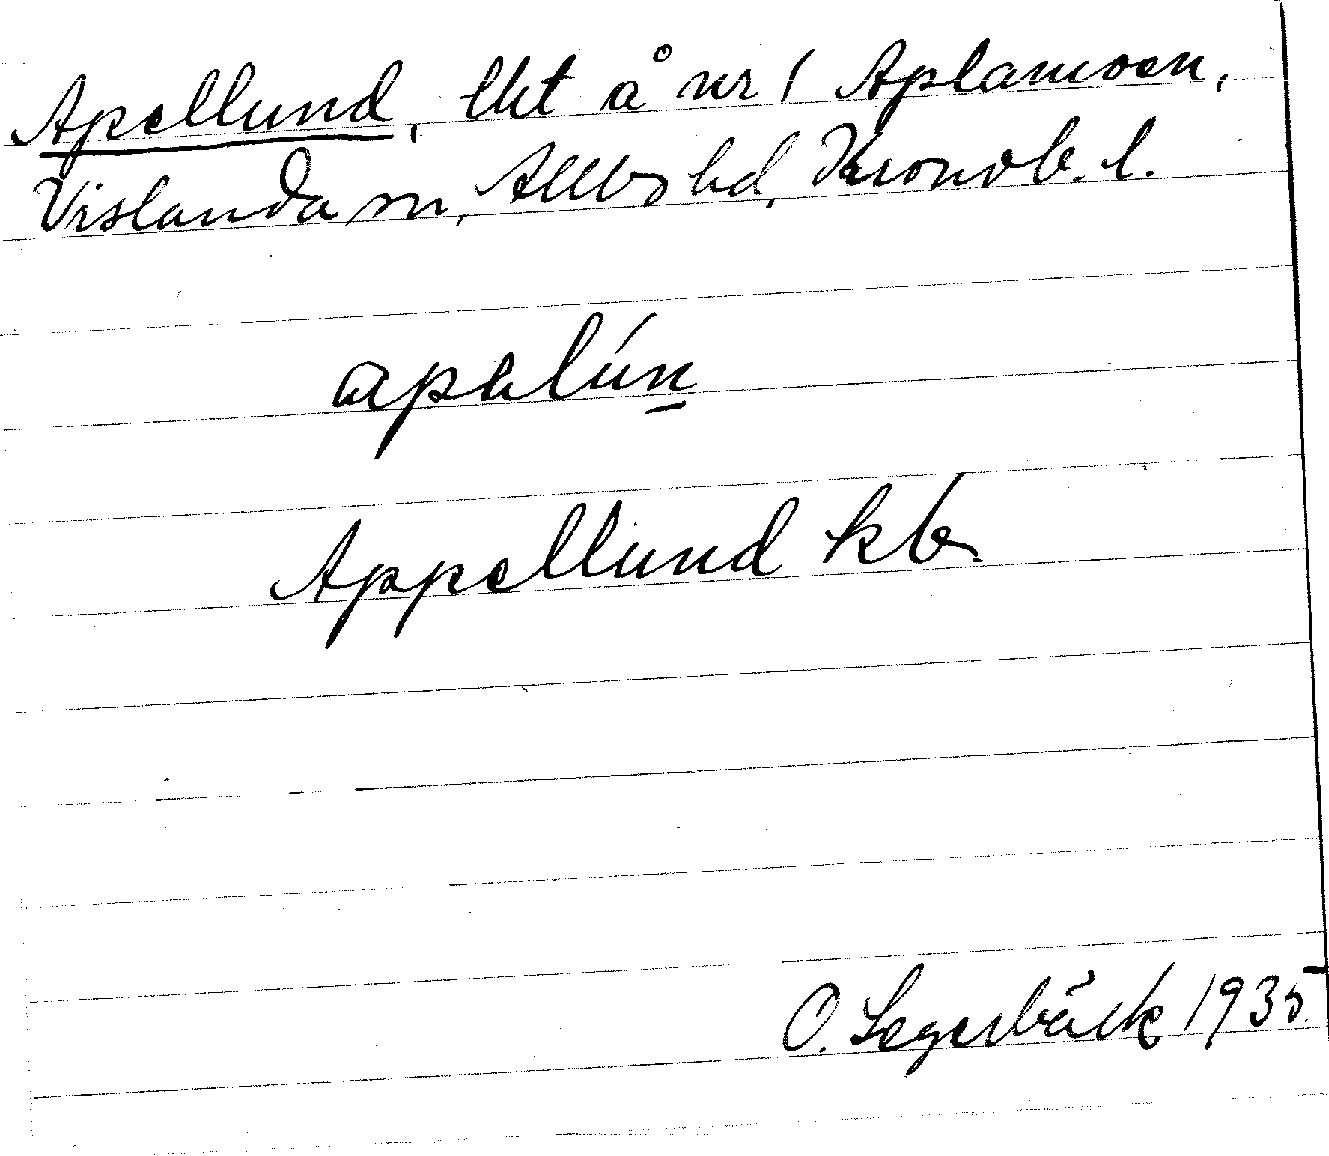 Apellund, lht å nr 1 Aplamoen,
Vislanda sn, Allbo hd, Kronob. l.
apəlún
Appellund kb.
O. Segerbäck 1935